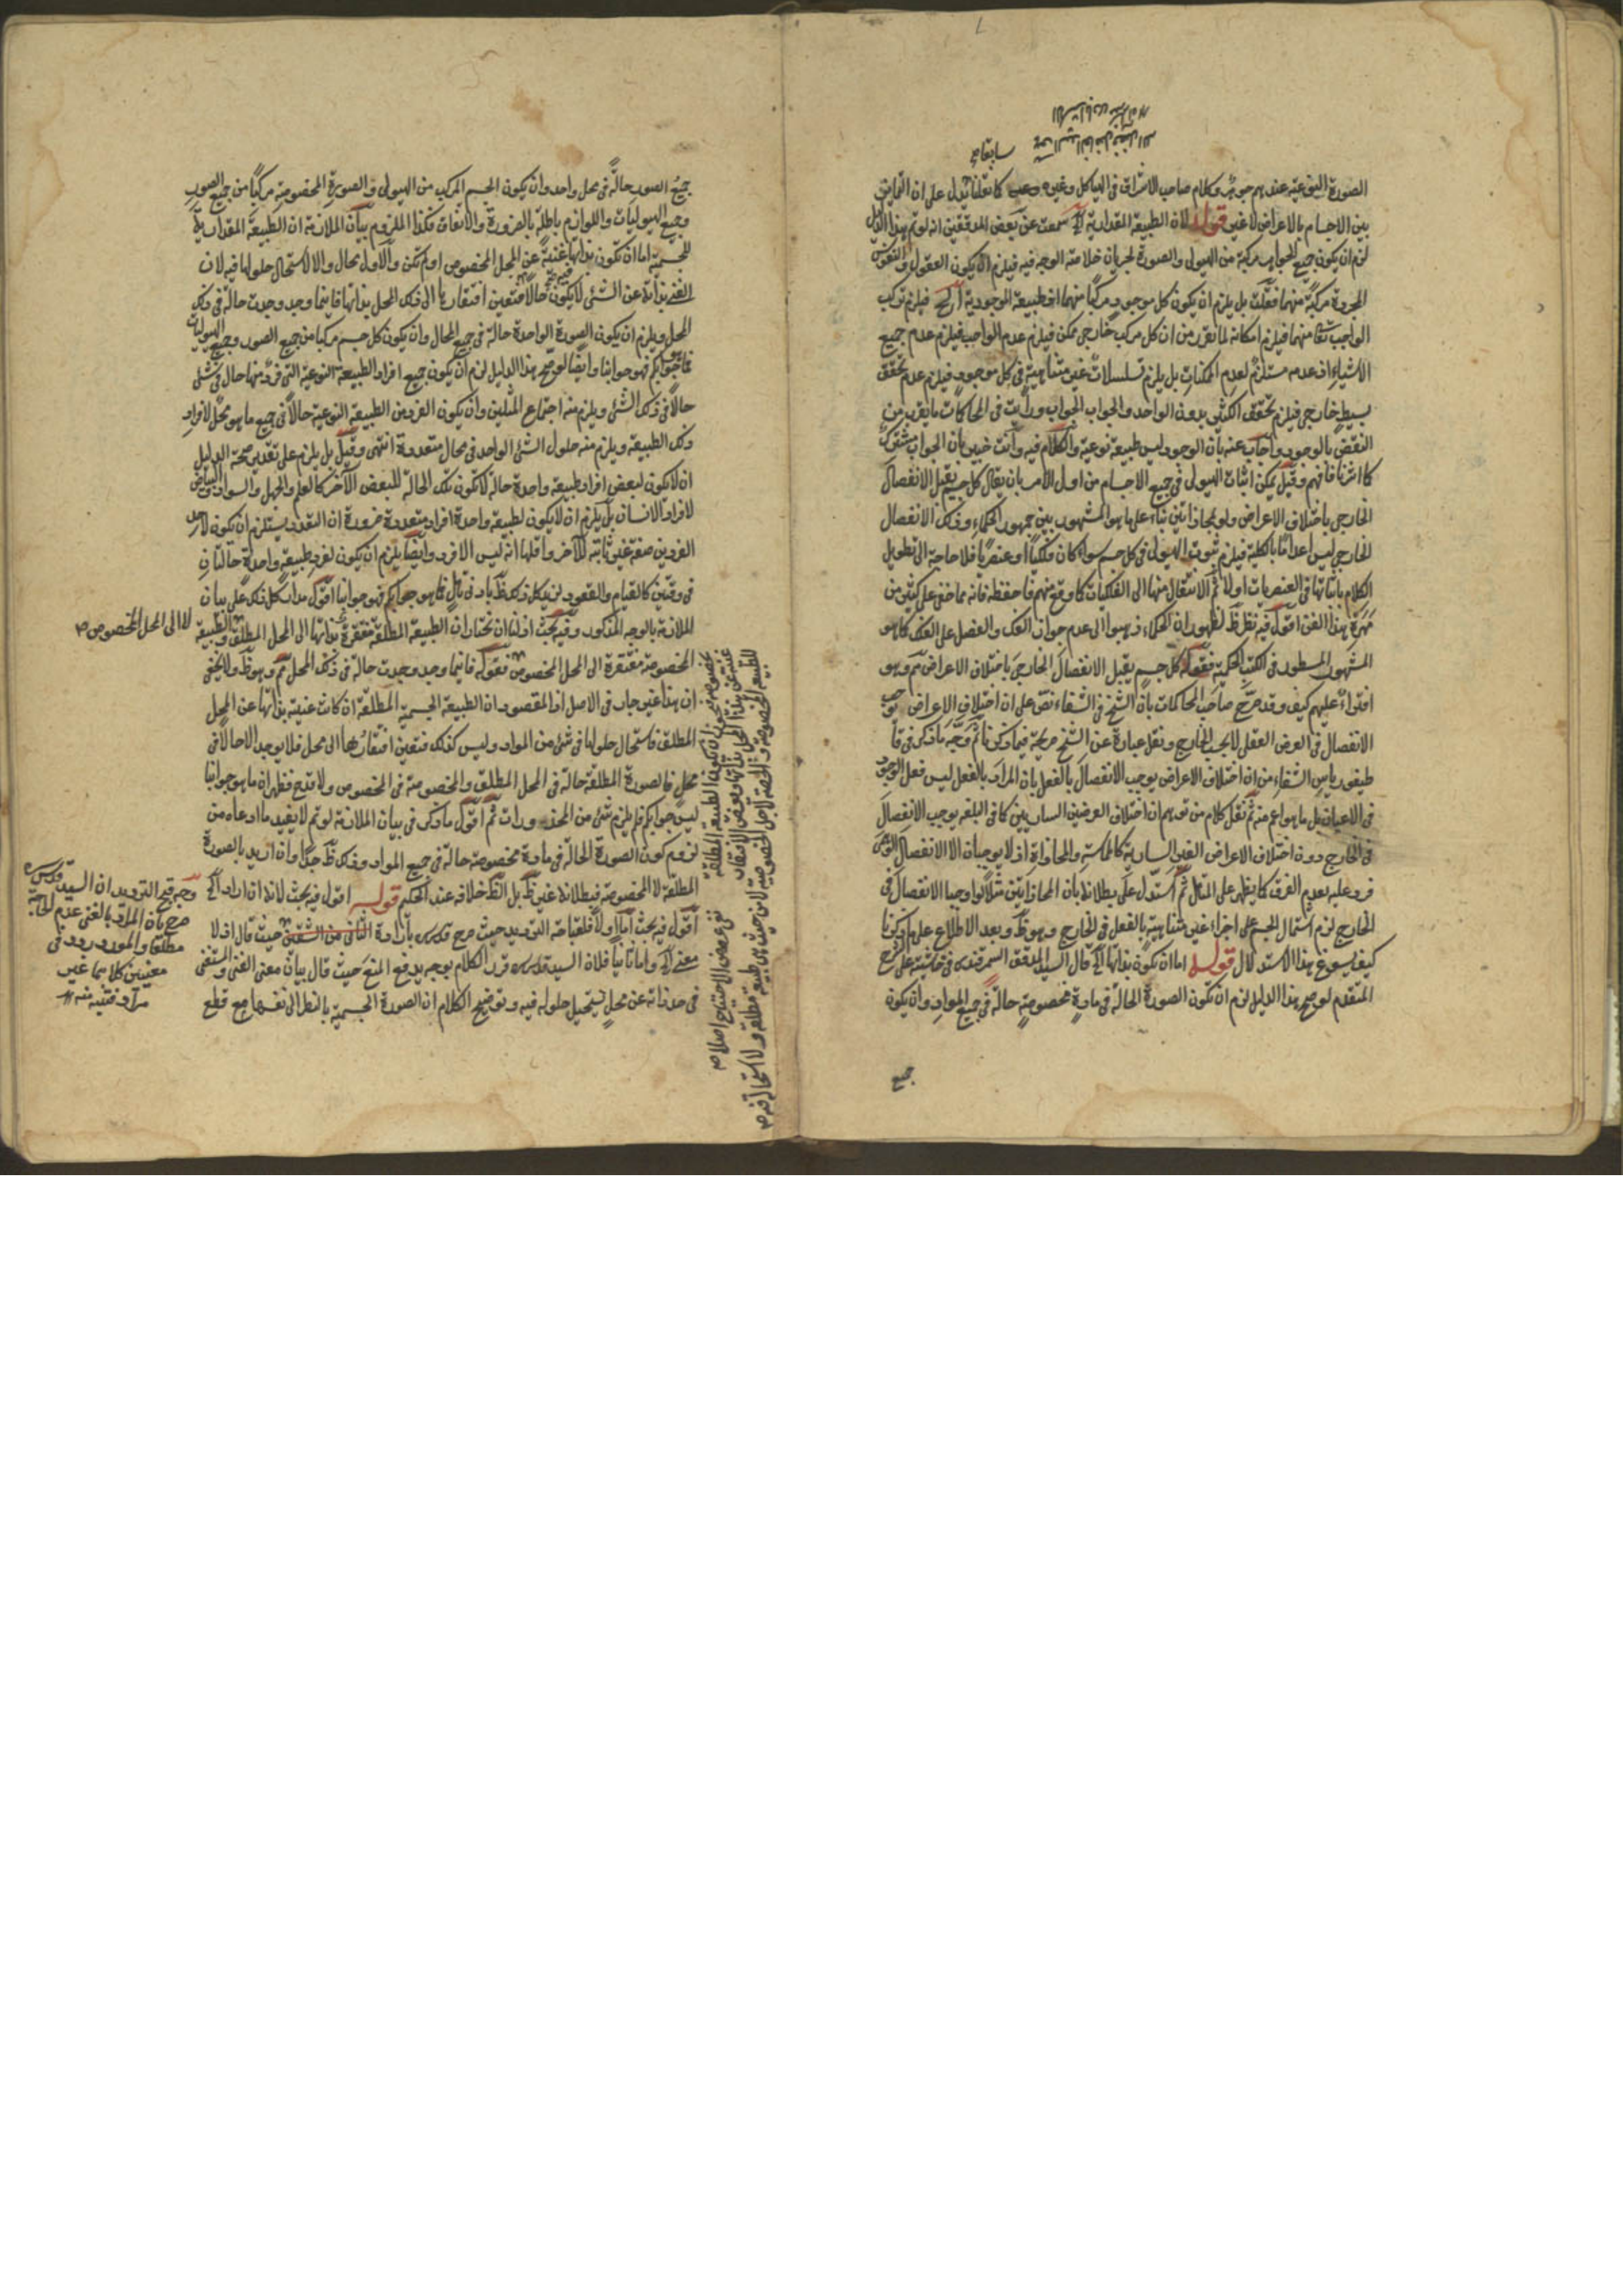 الصورة النوعية عندهم جوهر وكلام صاحب الاشراق في الهياكل وغيره كما نقلنا يدل على ان التمايز
بين الاجسام بالاعراض لا غير قوله لان الطبيعة المقدارية الخ سمعت عن بعض المدققين انه لو تم هذا الدليل
لزم ان يكون جميع الجواهر مركبة من الهيولى والصورة لجريان خلاصة الوجه فيه فيلزم ان يكون العقول والنفوس
المجردة مركبة منهما فقلت بل يلزم ان يكون كل موجود مركبا منهما اذ طبيعة الموجودية الخ فيلزم تركب
الواجب تعالى منهما فيلزم امكانه لما تقرر من ان كل مركب خارجي ممكن فيلزم عدم الواجب فيلزم عدم جميع
الاشياء اذ عدمه مستلزم لعدم الممكنات بل يلزم تسلسلات غير متناهية في كل موجود فيلزم عدم تحقق
بسيط خارجي فيلزم تحقق الكثير بدون الواحد والجواب الجواب ورأيت في المحاكمات ما يقرب من
النقض بالوجود واجاب عنه بان الوجود ليس طبيعة نوعية والكلام فيه وانت خبير بان الجواب مشترك
كما اشرنا فافهم وقيل يمكن اثبات الهيولى في جميع الاجسام من اول الامر بان يقال كل جسم يقبل الانفصال
الخارجي باختلاف الاعراض ولو بمحاذاتين بناء على ما هو المشهور بين جمهور الحكماء وذلك الانفصال
الخارجي ليس اعداما بالكلية فيلزم ثبوت الهيولى في كل جسم سواء كان فلكيا او عنصريا فلا حاجة الى تطويل
الكلام باثباتها في العنصريات اولا ثم الانتقال منها الى الفلكيات كما وقع منهم فاحفظه فانه مما خفي على كثير من
مهرة هذا الفن اقول فيه نظر ظ لظهور ان الحكماء ذهبوا الى عدم جواز الفك والفصل على الفلك كما هو
المشهور المسطور في الكتب الحكمية فقوله كل جسم يقبل الانفصال الخارجي باختلاف الاعراض مم وهو
افتراء عليهم كيف وقد صرح صاحب المحاكمات بان الشيخ في الشفاء نص على ان اختلاف الاعراض يوجب
الانفصال في الفرض العقلي لا بحسب الخارج ونقل عبارة عن الشيخ صريحة فيما ذكرنا ثم وجه ما ذكر في قا
طيغورياس الشفاء من ان اختلاف الاعراض يوجب الانفصال بالفعل بان المراد بالفعل ليس فعل الوجود
في الاعيان بل ما هو اعم منه ثم نقل كلام من توهم ان اختلاف العرضين الساريين كما في البلقة يوجب الانفصال
في الخارج دون اختلاف الاعراض الغير السارية كالمماسة والمحاذاة اذ لا يوجبان الا الانفصال الوهمي
فرد عليه بعدم الفرق كما يظهر على المتأمل ثم استدل على بطلانه بان المحاذاتين مثلا لو اوجبا الانفصال في
الخارج لزم اشتمال الجسم على اجزاء غير متناهية بالفعل في الخارج وهو ظ وبعد الاطلاع على ما ذكرنا
كيف يسوغ هذا الاستدلال قوله اما ان تكون بذاتها الخ قال السيد المدقق السمرقندي في حاشيته على شرح
المتقدم لو صح هذا الدليل لزم ان تكون الصورة الحالة في مادة مخصوصة حالة في جميع المواد وان يكون
جميع
جميع الصور حالة في محل واحد وان يكون الجسم المركب من الهيولى والصورة المخصوصة مركبا من جميع الصور
وجميع الهيوليات واللوازم باطلة بالضرورة والاتفاق فكذا الملزوم بيان الملازمة ان الطبيعة المقدارية
للجسمية اما ان تكون بذاتها غنية عن المحل المخصوص او لم تكن والاول محال والا لاستحال حلولها فيه لان
الغني بذاته عن الشئ لا يكون حالا فيه فتعين افتقارها الى ذلك المحل بذاتها فاينما وجد وجدت حالة في ذلك
المحل ويلزم ان يكون الصورة الواحدة حالة في جميع المحال وان يكون كل جسم مركبا من جميع الصور وجميع الهيوليات
فما هو جوابكم فهو جوابنا وايضا لو صح هذا الدليل لزم ان يكون جميع افراد الطبيعة النوعية التي فرد منها حال في شئ
حالا في ذلك الشئ ويلزم منه اجتماع المثلين وان يكون الفرد من الطبيعة النوعية حالا في جميع ما هو محل لافراد
ذلك الطبيعة ويلزم منه حلول الشئ الواحد في محال متعددة انتهى وقيل بل يلزم على تقدير صحة الدليل
ان لا تكون لبعض افراد طبيعة واحدة حالة لا تكون تلك الحالة للبعض الآخر كالعلم والجهل والسواد والبياض
لافراد الانسان بل يلزم ان لا يكون لطبيعة واحدة افراد متعددة ضرورة ان التعدد يستلزم ان يكون لاحد
الفردين صفة غير ثابتة للآخر واقلها انه ليس الآخر وايضا يلزم ان يكون لفرد طبيعة واحدة حالتان
في وقتين كالقيام والقعود لزيد كل ذلك ظ بادنى تأمل فما هو جوابكم فهو جوابنا اقول مدار كل ذلك على بيان
الملازمة بالوجه المذكور وفيه بحث اذ لنا ان نختار ان الطبيعة المطلقة مفتقرة بذاتها الى المحل المطلق والطبيعة
لا الى المحل المخصوص صح
المخصوصة مفتقرة الى المحل المخصوص فقوله فاينما وجد وجدت حالة في ذلك المحل مم وهو ظ ولا يخفى
ان هذا غير جار في الاصل اذ المقصود ان الطبيعة الجسمية المطلقة ان كانت غنية بذاتها عن المحل
المطلق فاستحال حلولها في شئ من المواد وليس كذلك فتعين افتقارها الى محل فلا يوجد الا حالا في
محل فالصورة المطلقة حالة في المحل المطلق والمخصوصة في المخصوص ولا قدح فظهر ان ما هو جوابنا
ليس جوابكم فلم يلزم شئ من المحذورات ثم اقول ما ذكر في بيان الملازمة لو تم لا يفيد ما ادعاه من
لزوم كون الصورة الحالة في مادة مخصوصة حالة في جميع المواد وذلك ظ جدا وان اريد بالصورة
المطلقة لا المخصوصة فبطلانه غير ظ بل الظ خلافه عند الحكم قوله اقول فيه بحث لانه ان اراد الخ
اقول فيه بحث اما اولا فلقباحة الترديد حيث صرح قدس سره بارادة الثاني من الشقين حيث قال اذ لا
معنى الخ واما ثانيا فلان السيد قدس سره قرر الكلام بوجه يدفع المنع حيث قال بيان معنى الغني والمستغني
في حد ذاته عن محل يستحيل حلوله فيه وتوضيح الكلام ان الصورة الجسمية بالنظر الى نفسها مع قطع
وجه قبح الترديد ان السيد قدس سره
صرح بان المراد بالغنى عدم الحاجة
مطلقا والمورد ردد في
معنيين كلاهما غير
مراد فتنبه منه